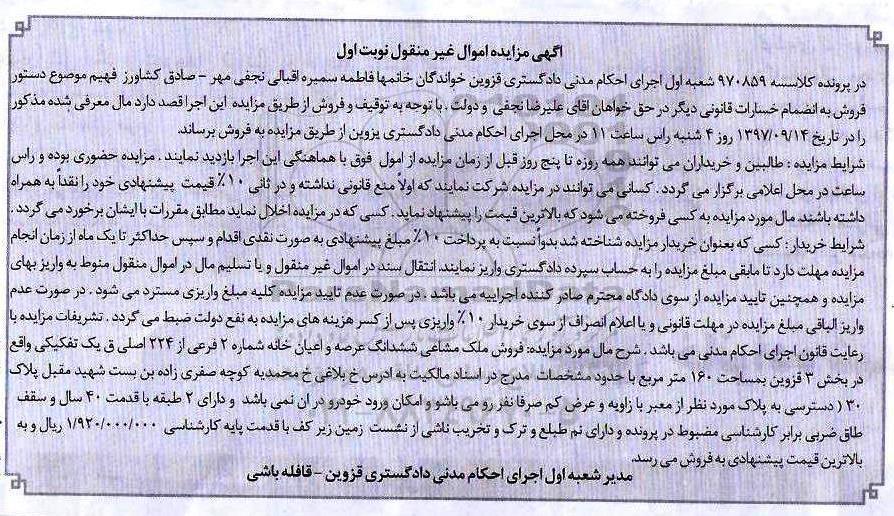 آگهی مزایده اموال غیر منقول نوبت اول
در پرونده کلاسسه ۹۷۰۸۵۹ شعبه اول اجرای احکام مدنی دادگستری قزوین خواندگان خانمها فاطمه سمیره اقبالی نجفی مهر - صادق کشاورز فهیم موضوع دستور
فروش به انضمام خسارات قانونی دیگر در حق خواهان اقای علیرضا نجفی و دولت ، با توجه به توقیف و فروش از طریق مزایده این اجرا قصد دارد مال معرفی شده مذکور
را در تاریخ ۱۳۹۷/۰۹/۱۴ روز ۴ شنبه راس ساعت ۱۱ در محل اجرای احکام مدنی دادگستری یزوین از طریق مزایده به فروش برساند.
شرایط مزایده : طالبین و خریداران می توانند همه روزه تا پنج روز قبل از زمان مزایده از امول فوق با هماهنگی این اجرا بازدید نمایند . مزایده حضوری بوده و راس
ساعت در محل اعلامی برگزار می گردد . کسانی می توانند در مزایده شرکت نمایند که اولاً منع قانونی نداشته و در ثانی ۱۰٪ قیمت پیشنهادی خود را نقداً به همراه
داشته باشند. مال مورد مزایده به کسی فروخته می شود که بالاترین قیمت را پیشنهاد نماید . کسی که در مزایده اخلال نماید مطابق مقررات با ایشان برخورد می گردد .
شرایط خریدار : کسی که بعنوان خریدار مزایده شناخته شد بدواً نسبت به پرداخت ۱۰٪ مبلغ پیشنهادی به صورت نقدی اقدام و سپس حداکثر تا یک ماه از زمان انجام
مزایده مهلت دارد تا مابقی مبلغ مزایده را به حساب سپرده دادگستری واریز نمایند. انتقال سند در اموال غیر منقول و یا تسلیم مال در اموال منقول منوط به واریز بهای
مزایده و همچنین تایید مزایده از سوی دادگاه محترم صادر کننده اجراییه می باشد . در صورت عدم تایید مزایده کلیه مبلغ واریزی مسترد می شود . در صورت عدم
واریز الباقی مبلغ مزایده در مهلت قانونی و یا اعلام انصراف از سوی خریدار ۱۰٪ واریزی پس از کسر هزینه های مزایده به نفع دولت ضبط می گردد . تشریفات مزایده با
رعایت قانون اجرای احکام مدنی می باشد . شرح مال مورد مزایده: فروش ملک مشاعی ششدانگ عرصه و اعیان خانه شماره ۲ فرعی از ۲۲۴ اصلی ق یک تفکیکی واقع
در بخش ۳ قزوین بمساحت ۱۶۰ متر مربع با حدود مشخصات مدرج در اسناد مالکیت به ادرس خ بلاغی خ محمدیه کوچه صفری زاده بن بست شهید مقبل پلاک
۳۰ ( دسترسی به پلاک مورد نظر از معبر با زاویه و عرض کم صرفا نفر رو می باشو و امکان ورود خودرو در ان نمی باشد و دارای ۲ طبقه با قدمت ۴۰ سال و سقف
طاق ضربی برابر کارشناسی مضبوط در پرونده و دارای نم طبلع و ترک و تخریب ناشی از نشست زمین زیر کف با قدمت پایه کارشناسی ۱/۹۲۰/۰۰۰/۰۰۰ ریال و به
بالاترین قیمت پیشنهادی به فروش می رسد.
مدیر شعبه اول اجرای احکام مدنی دادگستری قزوین - قافله باشی